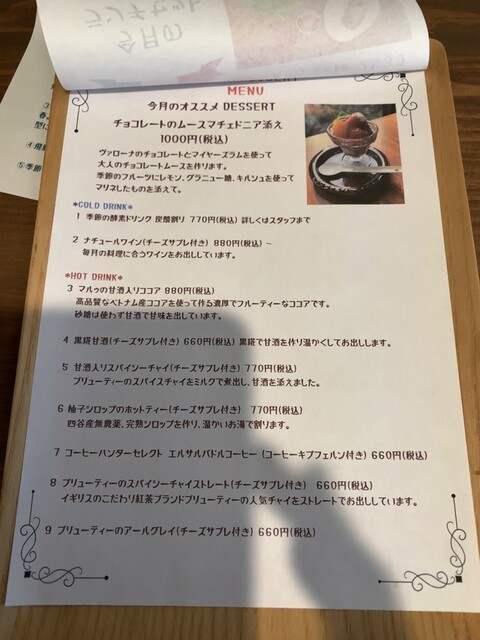 今月の
ランチセット
MENU
今月のオススメ DESSERT
チョコレートのムースマチェドニア添え
1000円(税込)
ヴァローナのチョコレートとマイヤーズラムを使って
大人のチョコレートムースを作ります。
季節のフルーツにレモン、グラニュー糖、キルシュを使って
マリネしたものを添えて。
*COLD DRINK*
1 季節の酵素ドリンク 炭酸割り 770円(税込) 詳しくはスタッフまで
2 ナチュールワイン(チーズサブレ付き) 880円(税込) ~
毎月の料理に合うワインをお出ししています。
*HOT DRINK*
3 マルゥの甘酒入りココア 880円(税込)
高品質なベトナム産ココアを使って作る濃厚でフルーティーなココアです。
砂糖は使わず甘酒で甘味を出しています。
4 黒糀甘酒(チーズサブレ付き) 660円(税込) 黒糀で甘酒を作り温かくしてお出しします。
5 甘酒入りスパイシーチャイ(チーズサブレ付き) 770円(税込)
ブリューティーのスパイスチャイをミルクで煮出し、甘酒を添えました。
6 柚子シロップのホットティー(チーズサブレ付き) 770円(税込)
四谷産無農薬、完熟シロップを作り、温かいお湯で割ります。
7 コーヒーハンターセレクト エルサルバドルコーヒー (コーヒーキプフェルン付き) 660円(税込)
8 ブリューティーのスパイシーチャイストレート(チーズサブレ付き) 660円(税込)
イギリスのこだわり紅茶ブランドブリューティーの人気チャイをストレートでお出ししています。
9 ブリューティーのアールグレイ(チーズサブレ付き) 660円(税込)